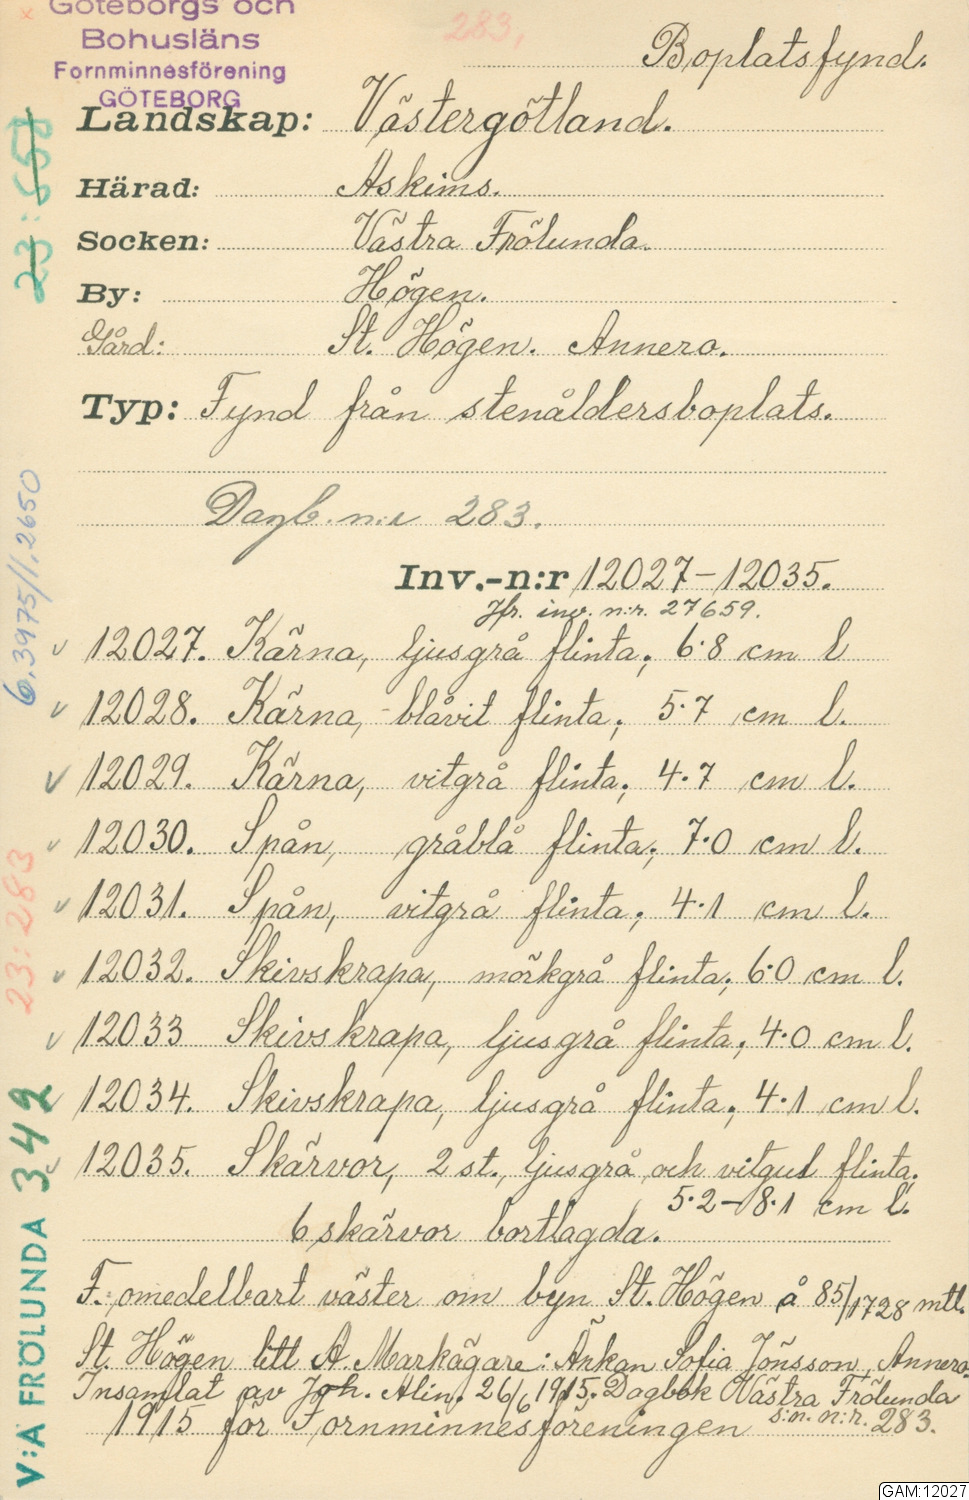 Göteborgs och
Bohusläns
Fornminnesförening
GÖTEBORG
283.
Boplatsfynd.
Landskap: Västergötland.
Härad: Askims.
Socken: Västra Frölunda.
By: Högen.
Gård: St. Högen. Annero.
Typ: Fynd från stenåldersboplats.
Dagb. n:r 283.
Inv.-n:r 12027-12035.
Jfr. inv. n:r. 27659.
12027. Kärna, ljusgrå flinta; 6.8 cm l
12028. Kärna, blåvit flinta; 5.7 cm l.
12029. Kärna, vitgrå flinta; 4.7 cm l.
12030. Spån, gråblå flinta; 7.0 cm l.
12031. Spån, vitgrå flinta; 4.1 cm l.
12032. Skivskrapa, mörkgrå flinta; 6.0 cm l.
12033 Skivskrapa, ljusgrå flinta; 4.0 cm l.
12034. Skivskrapa, ljusgrå flinta; 4.1 cm l.
12035. Skärvor, 2 st., ljusgrå och vitgul flinta;
5.2-8.1 cm l.
6 skärvor bortlagda.
F. omedelbart väster om byn St. Högen å 85/1728 mtl.
St. Högen litt A. Markägare: Änkan Sofia Jönsson, Annero.
Insamlat av Joh. Alin. 26/6 1915. Dagbok Västra Frölunda
1915 för Fornminnesföreningen s:n. n:r. 283.
23:657
6.3975/1.2650
23:283
V:A FRÖLUNDA 342
GAM:12027